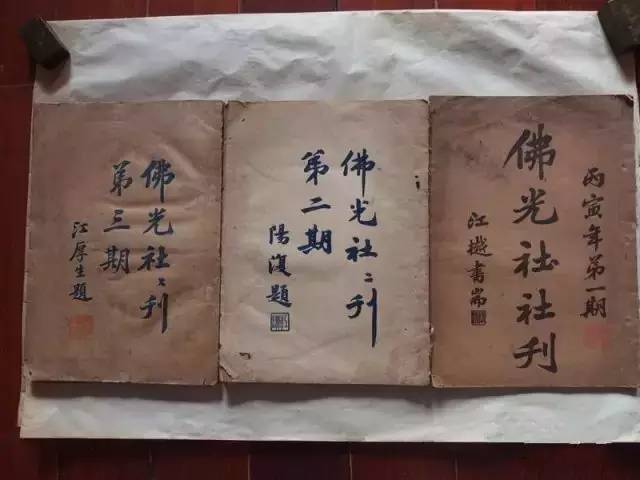 丙寅年第一期
佛光社社刊
江書耑
佛光社〻刊
第二期
陽復題
佛光社〻刊
第三期
江厚生題